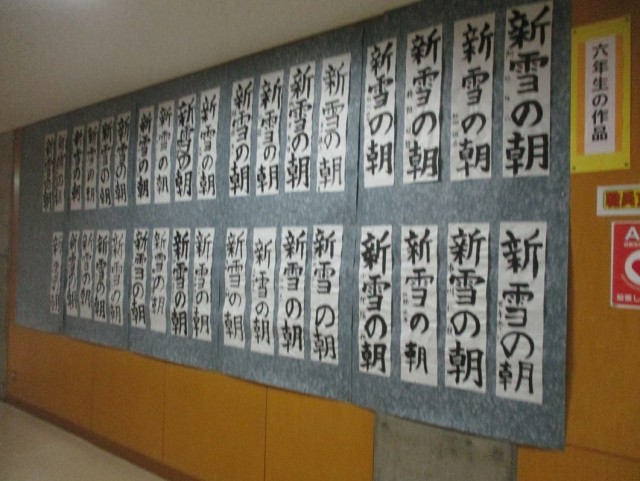 六年生の作品
職員
新雪の朝
新雪の朝
新雪の朝
新雪の朝
新雪の朝
新雪の朝
新雪の朝
新雪の朝
新雪の朝
新雪の朝
新雪の朝
新雪の朝
新雪の朝
新雪の朝
新雪の朝
新雪の朝
新雪の朝
新雪の朝
新雪の朝
新雪の朝
新雪の朝
新雪の朝
新雪の朝
新雪の朝
新雪の朝
新雪の朝
新雪の朝
新雪の朝
新雪の朝
新雪の朝
新雪の朝
新雪の朝
新雪の朝
新雪の朝
新雪の朝
A